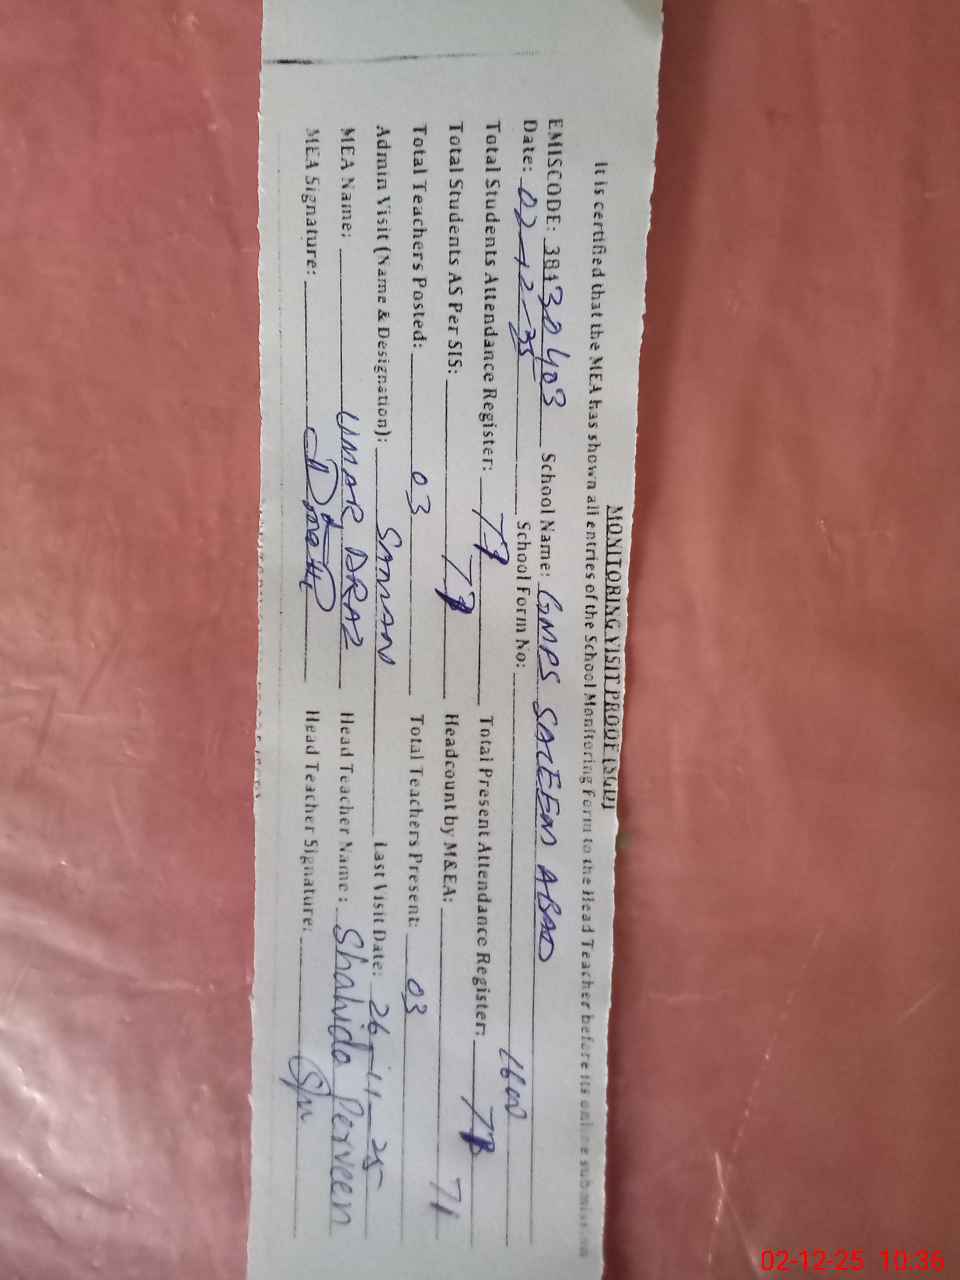 MONITORING VISIT PROOF (SGD)
It is certified that the MEA has shown all entries of the School Monitoring Form to the Head Teacher before its online submission
EMISCODE: 38130403 School Name: GMPS SALEEM ABAD
Date: 02-12-25 School Form No:
Total Students Attendance Register: Total Present Attendance Register:
Total Students AS Per SIS: Headcount by M&EA: 71
Total Teachers Posted: 03 Total Teachers Present: 03
Admin Visit (Name & Designation): SAMAN Last Visit Date: 26-11-25
MEA Name: UMAR DRAZ Head Teacher Name: Shahida Perveen
MEA Signature: Head Teacher Signature:
02-12-25 10:36